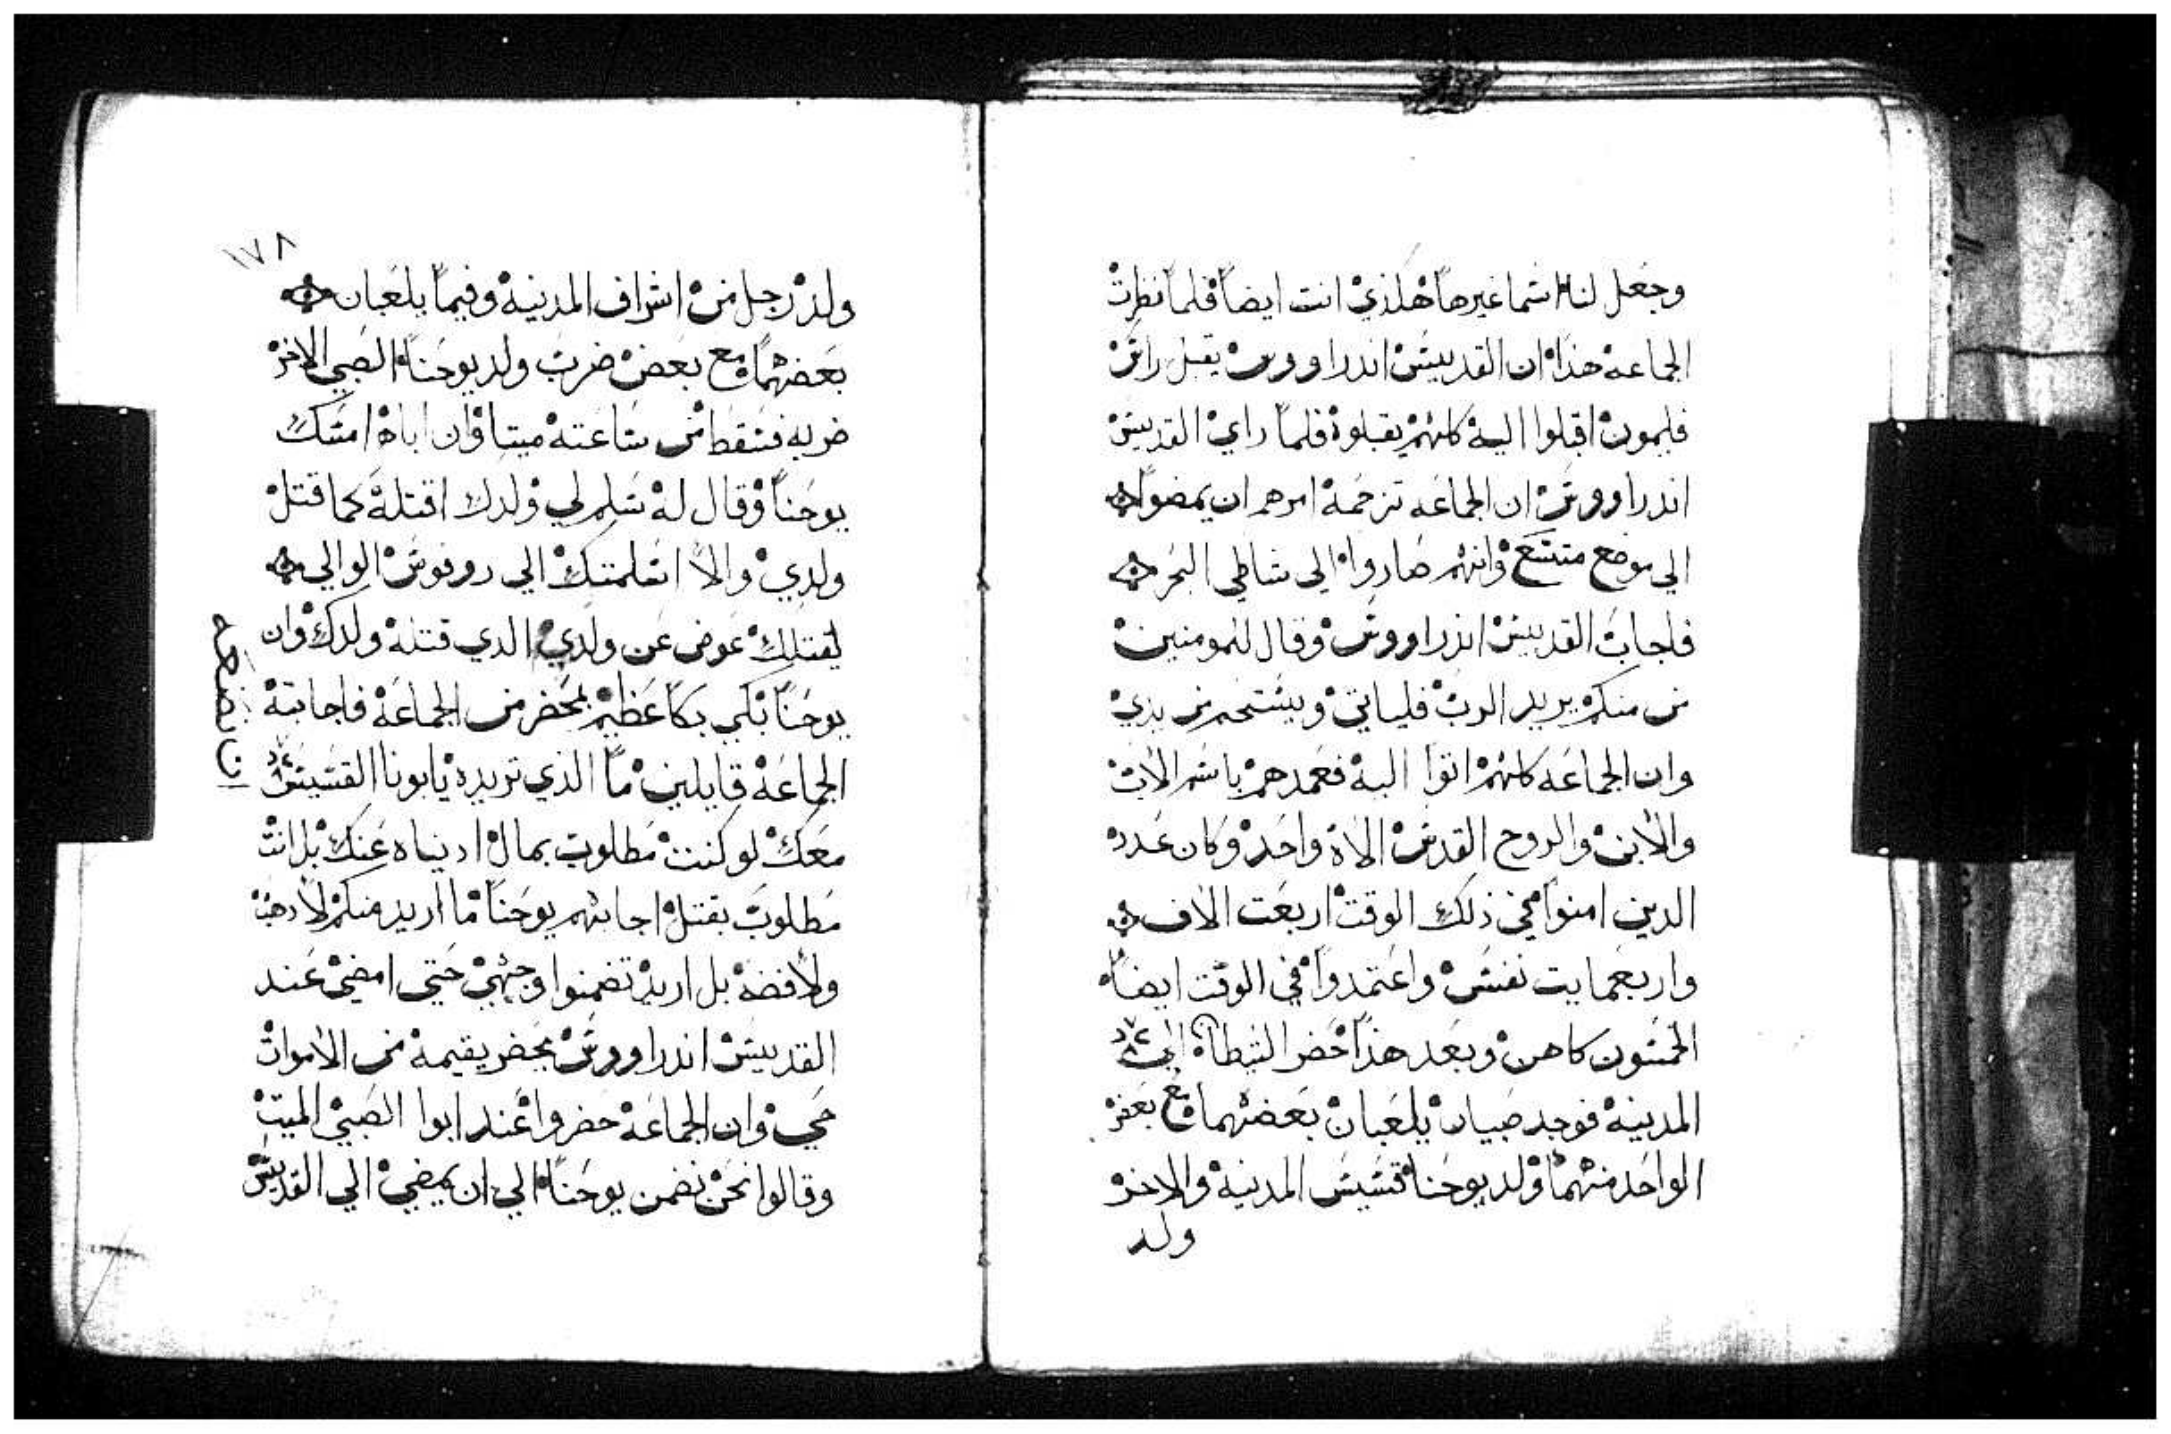 وجعل لنا اسما غيرها هكذي انت ايضا فلما نظرت
الجماعه هذا ان القديس اندراووس يقبل راس
فليمون اقبلوا اليه كلهم يقبلوه فلما راي القديس
اندراووس ان الجماعه تزحمه امرهم ان يمضوا
الي موضع متسع وانهم صاروا الي شاطي البحر
فاجاب القديس اندراووس وقال للمومنين
من منكم يريد الرب فلياتي ويستحم من يدي
وان الجماعه كلهم اتوا اليه فعمدهم باسم الاب
والابن والروح القدس الاه واحد وكان عدد
الدين امنوا في ذلك الوقت اربعت الاف
واربعمايت نفس واعتمدوا في الوقت ايضا
الخمسون كاهن وبعد هذا حضر الشيطان الي
المدينه فوجد صبيان يلعبان بعضهما مع بعض
الواحد منهما ولد يوحنا قسيس المدينه والاخر
ولد
١٧٨
ولد رجل من اشراف المدينه وفيما يلعبان
بعضهما مع بعض ضرب ولد يوحنا الصبي الاخر
ضربه فسقط من ساعته ميتا وان اباه امسك
يوحنا وقال له سلم لي ولدك اقتله كما قتل
ولدي والا اسلمتك الي روفوس الوالي
ليقتلك عوض عن ولدي الدي قتله ولدك وان
يوحنا بكي بكا عظيم بمحضر من الجماعه فاجابته
الجماعه قايلين ما الذي تريده يابونا القسيس
معك لو كنت مطلوب بمال ادنياه عنك بل انت
مطلوب بقتل اجابهم يوحنا ما اريد منكم لا دهب
ولا فضه بل اريد تضمنوا وجهي حتي امضي عند
القديس اندراووس يحضر يقيمه من الاموات
حي وان الجماعه حضروا عند ابوا الصبي الميت
وقالوا نحن نضمن يوحنا الي ان يمضي الي القديس